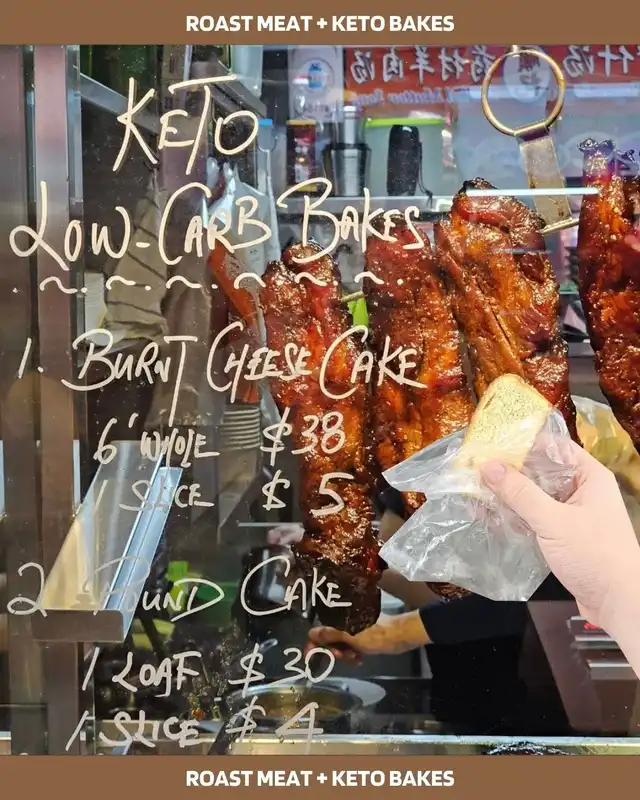 ROAST MEAT + KETO BAKES
什汤
药材羊肉汤
KETO
LOW-CARB BAKES
1. BURNT CHEESE CAKE
6" WHOLE $38
1 SLICE $5
2 POUND CAKE
1 LOAF $30
1 SLICE $4
ROAST MEAT + KETO BAKES